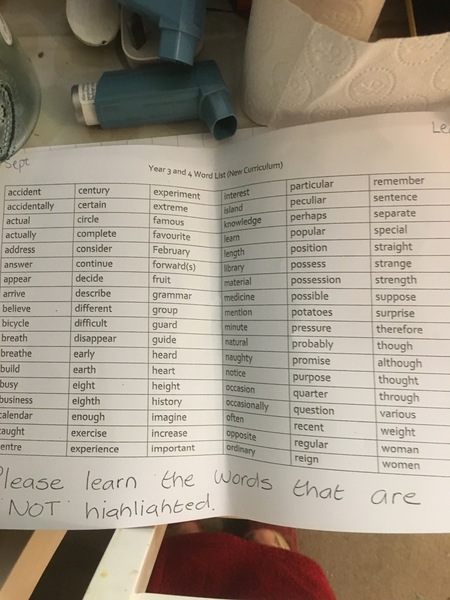 Sept
Year 3 and 4 Word List (New Curriculum)
accident century experiment interest particular remember
accidentally certain extreme island peculiar sentence
actual circle famous knowledge perhaps separate
actually complete favourite learn popular special
address consider February length position straight
answer continue forward(s) library possess strange
appear decide fruit material possession strength
arrive describe grammar medicine possible suppose
believe different group mention potatoes surprise
bicycle difficult guard minute pressure therefore
breath disappear guide natural probably though
breathe early heard naughty promise although
build earth heart notice purpose thought
busy eight height occasion quarter through
business eighth history occasionally question various
calendar enough imagine often recent weight
aught exercise increase opposite regular woman
entre experience important ordinary reign women
Please learn the words that are
'NOT' highlighted.